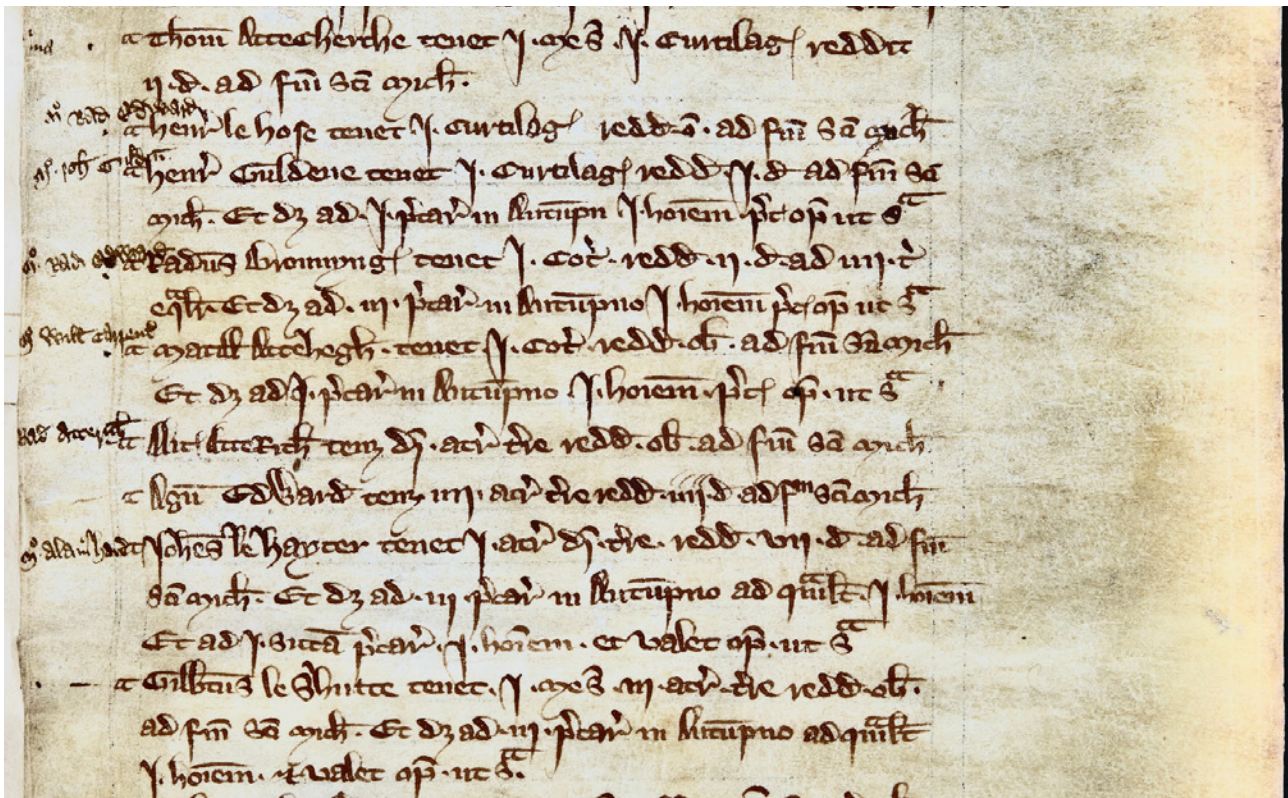 Thom̄ Attecherthe tenet .j. mes̄ .j. Curtilag̛ reddit
ij. d. ad fm̄ Sc̄i Mich̄.
m̊ Rađi Edward
henr̄ le hose tenet .j. Curtilag̛ redd̄ ad fm̄ Sc̄i Mich̄
henr̄ Guldene tenet .j. Curtilag̛ redd̄ .j. d ad fm̄ Sc̄i
Mich̄. Et dz ad .j. p̄car̄ in Autūpn .j. hoīem p̄c̄ op̄ ut sᵃ
m̊ Rađi Edward
Radūs Bronnyng̛ tenet .j. Cot̄. redd̄ .ij. d. ad iiij. t̄
eq̄lr̄. Et dz ad .iij. p̄car̄ in Autūpno .j. hoīem p̄c̄ op̄ ut sᵃ
m̊ Will̄
Matill̄ Attehegh̄. tenet .j. Cot̄. redd̄ .ob̄. ad fm̄ Sc̄i Mich̄
Et dz ad .j. p̄car̄ in Autūpno .j. hoīem. p̄c̄ op̄. ut sᵃ
Rad̄ Atterich̄
Alic̄ Atterich̄ tenz dī. acr̄ t̄re redd̄ .ob̄. ad fm̄ Sc̄i Mich̄
Agn̄ Edward̄ tenz iiij. acr̄ t̄re redd̄ .iiij. d. ad fm̄ Sc̄i Mich̄
Joh̄es le Hayter tenet .j. acr̄ dī. t̄re. redd̄. vij. d. ad fm̄
Sc̄i Mich̄. Et dz ad .iij. p̄car̄ in Autūpno ad quāl̄t .j. hoīem
Et ad .j. siccā p̄car̄ .j. hoīem. et valet op̄. ut sᵃ
Gilb̄tus le Shutte tenet. .j. mes̄ .iij. acr̄ t̄re redd̄ .ob̄.
ad fm̄ Sc̄i Mich̄. Et dz ad .iij. p̄car̄ in Autūpno ad quāl̄t
.j. hoīem. et valet op̄. ut sᵃ.